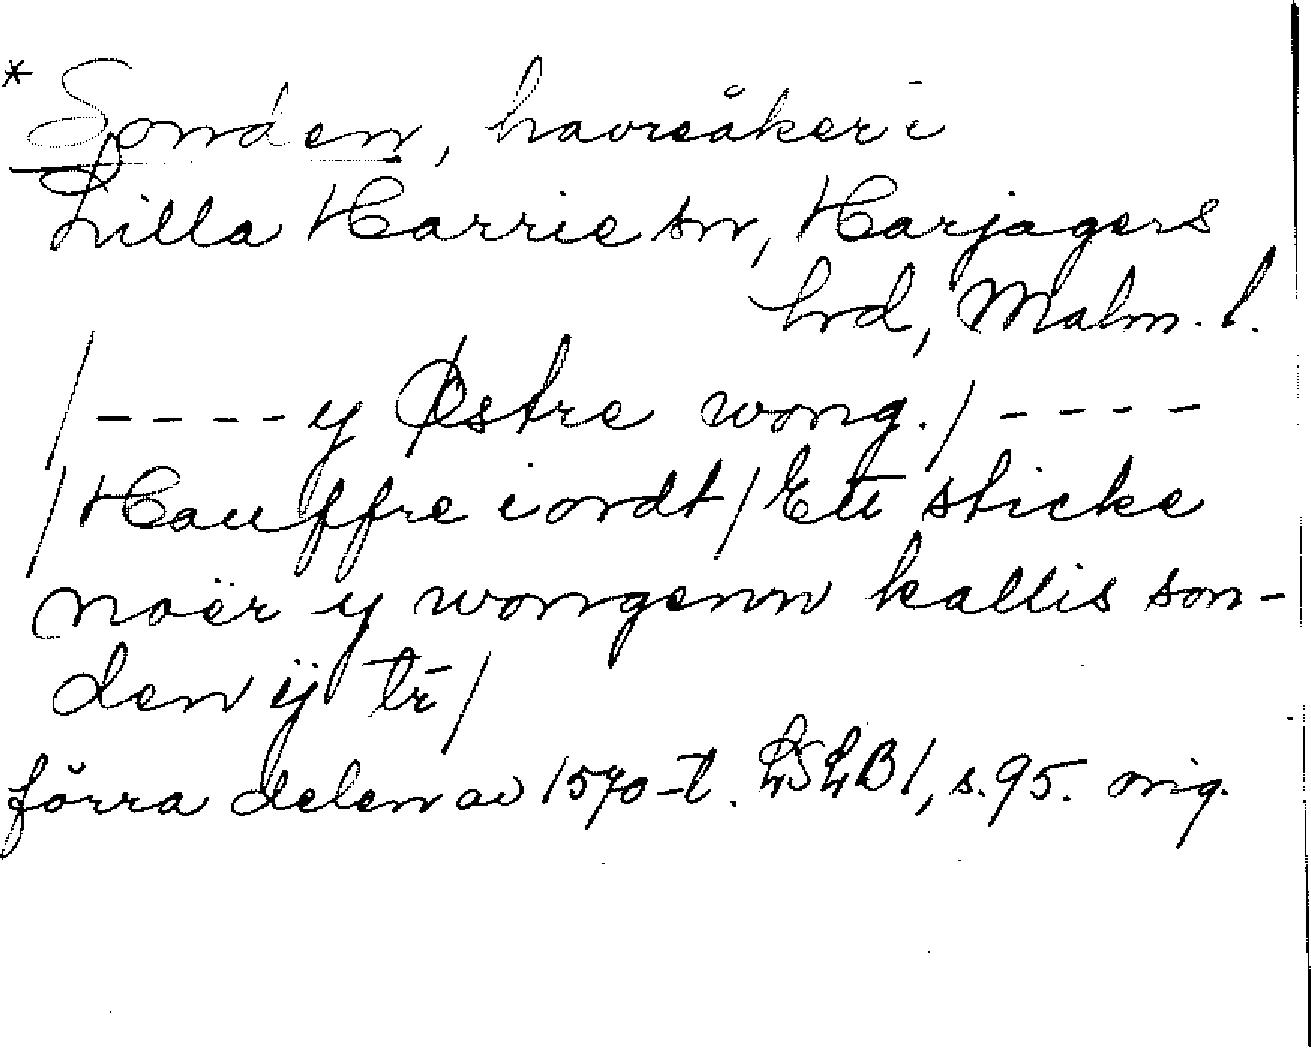 * Sonden, havreåker i
Lilla Harrie sn, Harjagers
hrd, Malm. l.
/---- y Østre wong. / ----
/ Hauffre iordt / Ett sticke
noër y wongenn kallis son-
den ÿ tr̄ /
förra delen av 1570-t. LSLB 1, s. 95. orig.